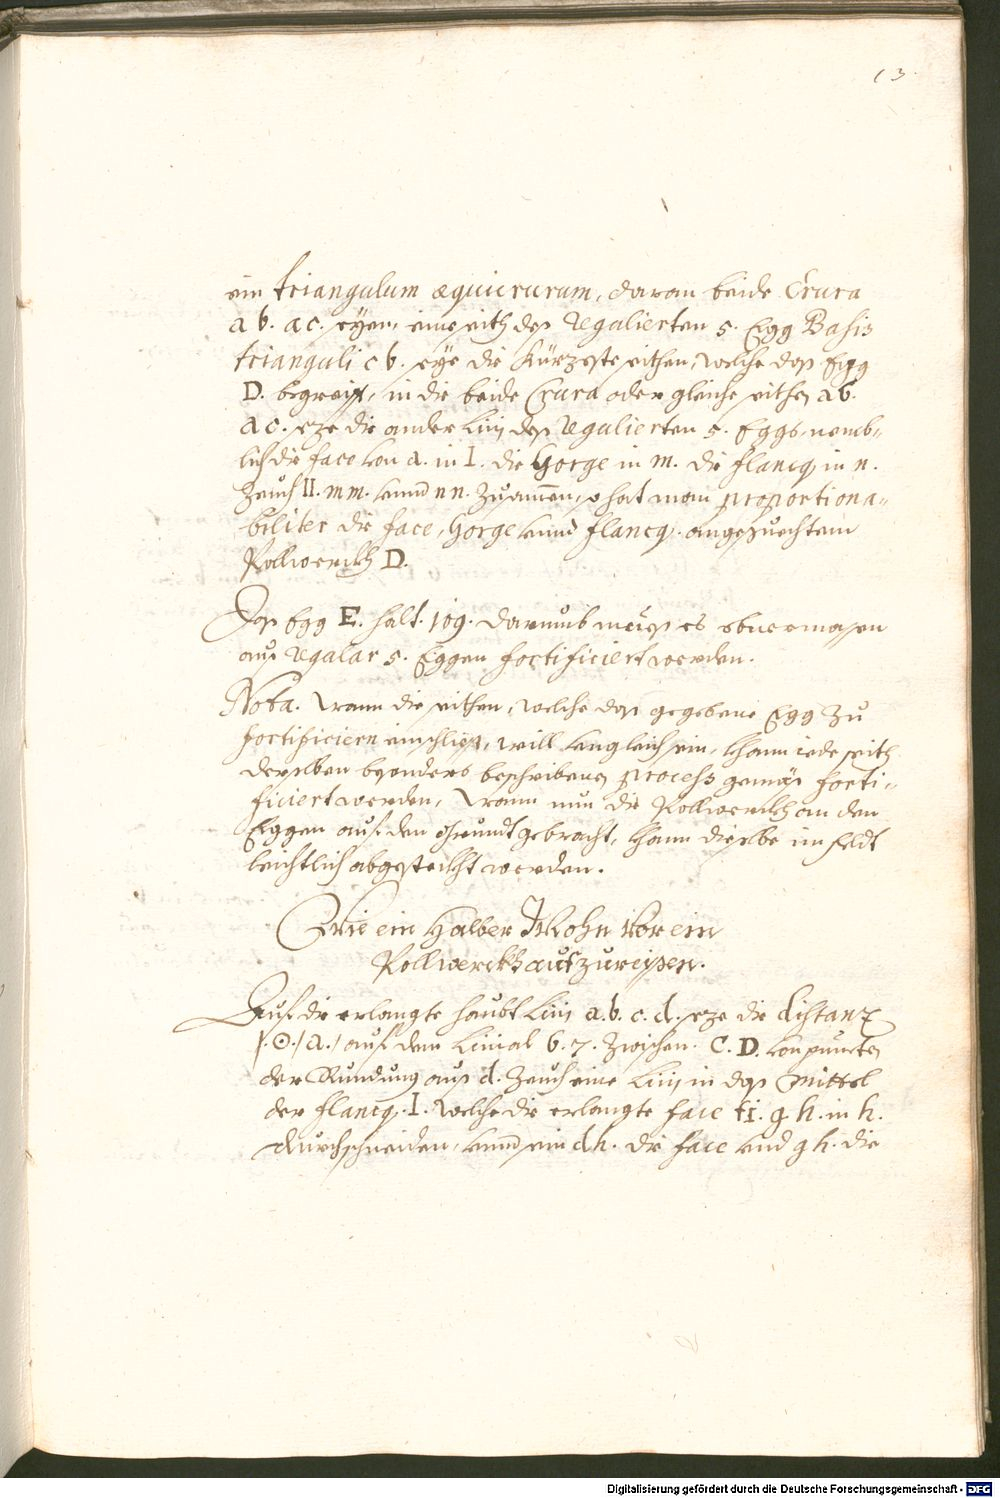 13.
ein triangulum æquicrurum, daran beide Crura
a b. a c. seyen, eine seith deß Regulierten 5. Egg Basis
trianguli c b. seye die kürzeste seithen, welche daß Egg
D. begreifft, in die beide Crura oder gleiche seithen a b.
a c. seze die ander Linj deß Regulierten 5. Eggs, nemb-
lich die face von a. in I. die Gorge in m. die flancq in n.
Zeuch II. mm. vnnd nn. Zusamen, so hat man proportiona-
biliter die face, Gorge vnnd flancq. angesuechtem
Pollwerckh D.
Daß Egg E. halt. 109. darumb mueß es abermassen
auß Regular 5. Eggen fortificiert werden.
Nota. Wann die seithen, welche daß gegebene Egg zu
fortificiern einschliest, will vngleich sein, khann iede seith
derselben bsonders beschribenen process gemäß forti-
ficiert werden, Wann nun die Pollwerckh an den
Eggen auf den grundt gebracht, khann dieselbe im feldt
leichtlich abgesteckht werden.
Wie ein Halber Mohn vor ein
Pollwerckh aufzureyssen.
Auf die erlangte haubt Linj a. b. c. d. seze die distanz
/. ⊙. / a. / auf dem Linial 6. 7. zwischen. C. D. von puncten
der Rundung auß d. Zeuch eine Linj in daß Mittel
der flancq. I. welche die erlangte face fi. g h. in h.
durchschneiden, vnnd sein d h. die face vnd g h. die
Digitalisierung gefördert durch die Deutsche Forschungsgemeinschaft - DFG